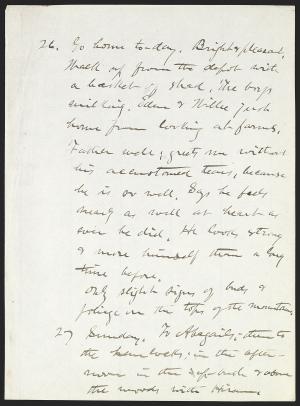 26. Go home to-day. Bright & pleasant,
Walk up from the depot with
a basket of shad. The boys
smiling. Eden & Willie just
home from looking at farms.
Father well; greets me without
his accustomed tears, because
he is so well. Says he feels
nearly as well at heart as
ever he did. He looks strong
& more himself than a long
time before.
Only slight signs of buds &
foliage on the tops of the mountains.
27 Sunday. To Abigails; then to
the hemlocks; in the after-
noon in the & above
the woods with Hiram.